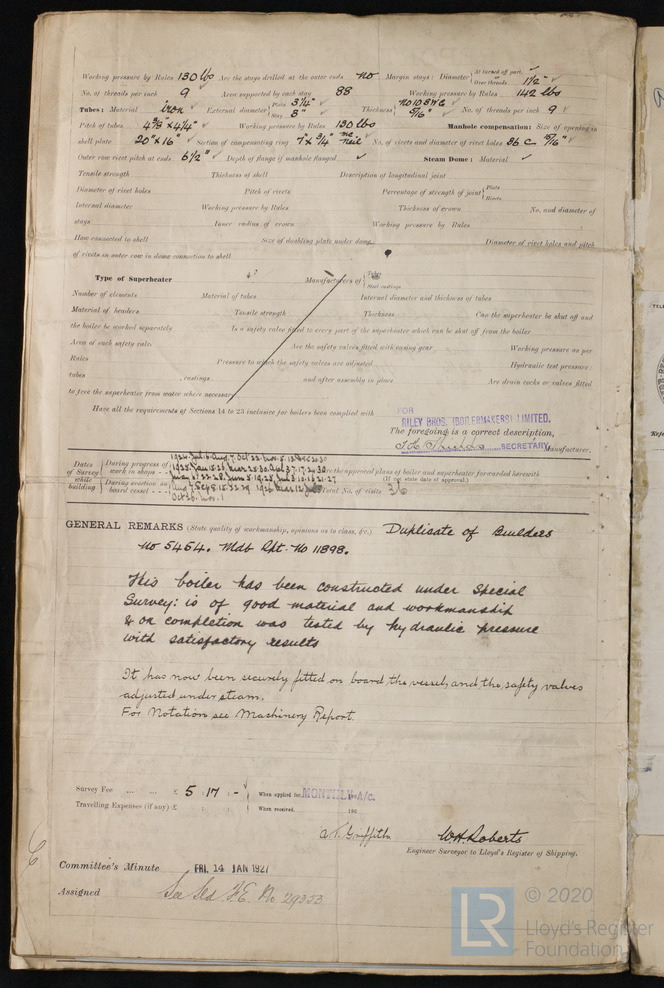 Working pressure by Rules 130 lbs Are the stays drilled at the outer ends no Margin stays: Diameter { At turned off part, Over threads 1½" ✓
No. of threads per inch 9 ✓ Area supported by each stay 88 Working pressure by Rules 142 lbs
Tubes: Material iron ✓ External diameter { Plain 3¼" ✓ Stay 3" ✓ Thickness { No 10 BWG 5/16" ✓ No. of threads per inch 9 ✓
Pitch of tubes 4⅜" x 4¼" ✓ Working pressure by Rules 130 lbs Manhole compensation: Size of opening in
shell plate 20" x 16" ✓ Section of compensating ring 7" x ¾" No. of rivets and diameter of rivet holes 36 15/16" ✓
Outer row rivet pitch at ends 6½" ✓ Depth of flange if manhole flanged ✓ Steam Dome: Material ✓
Tensile strength Thickness of shell Description of longitudinal joint
Diameter of rivet holes Pitch of rivets Percentage of strength of joint { Plate Rivets
Internal diameter Working pressure by Rules Thickness of crown No. and diameter of
stays Inner radius of crown Working pressure by Rules
How connected to shell Size of doubling plate under dome Diameter of rivet holes and pitch
of rivets in outer row in dome connection to shell
Type of Superheater Manufacturers of { Tubes Steel castings
Number of elements Material of tubes Internal diameter and thickness of tubes
Material of headers Tensile strength Thickness Can the superheater be shut off and
the boiler be worked separately Is a safety valve fitted to every part of the superheater which can be shut off from the boiler
Area of each safety valve Are the safety valves fitted with easing gear Working pressure as per
Rules Pressure to which the safety valves are adjusted Hydraulic test pressure:
tubes , castings and after assembly in place Are drain cocks or valves fitted
to free the superheater from water where necessary
Have all the requirements of Sections 14 to 23 inclusive for boilers been complied with
FOR
RILEY BROS. (BOILERMAKERS) LIMITED.
The foregoing is a correct description,
SECRETARY, Manufacturer.
Dates of Survey while building { During progress of work in shops - - During erection on board vessel - - -
Are the approved plans of boiler and superheater forwarded herewith
(If not state date of approval.)
Total No. of visits 36
GENERAL REMARKS (State quality of workmanship, opinions as to class, &c.) Duplicate of Builders
No 5454. Mdb Rpt. No 11898.
This boiler has been constructed under Special
Survey: is of good material and workmanship
& on completion was tested by hydraulic pressure
with satisfactory results
It has now been securely fitted on board the vessel, and the safety valves
adjusted under steam.
For Notation see Machinery Report.
Survey Fee ... ... £ 5 : 17 : - } When applied for, MONTHLY A/c. 192
Travelling Expenses (if any) £ : : When received, 192
A. T. Griffith W.H. Roberts
Engineer Surveyor to Lloyd's Register of Shipping.
Committee's Minute FRI. 14 JAN 1927
Assigned See Sld F.E. No 29353
© 2020
LR Lloyd's Register
Foundation